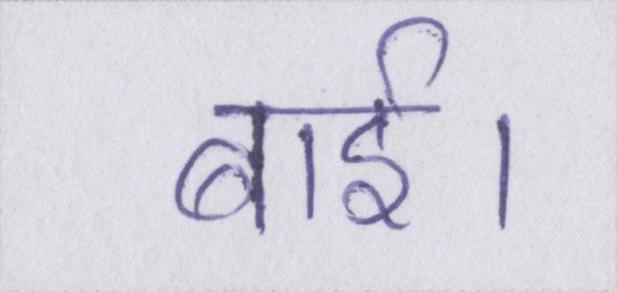 बाई।